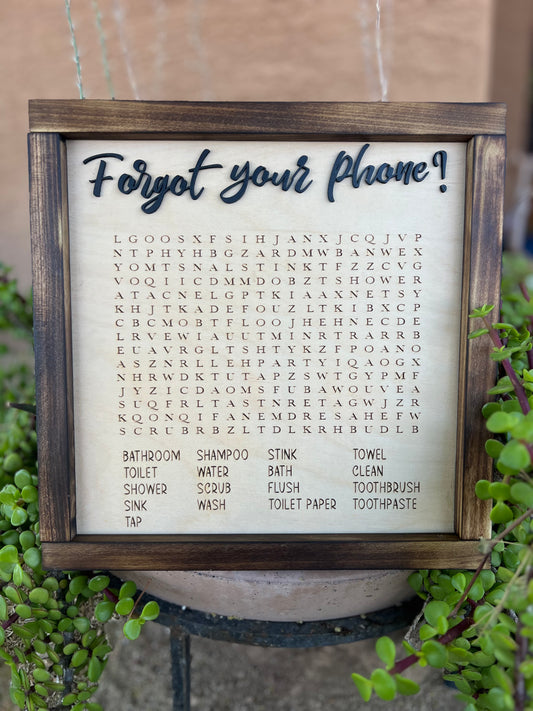 Forgot your phone?
L G O O S X F S I H J A N X J C Q J V P
N T P H Y H B G Z A R D M W B A N W E X
Y O M T S N A L S T I N K T F Z Z C V G
V O Q I I C D M M D O B Z T S H O W E R
A T A C N E L G P T K I A A X N E T S Y
K H J T K A D E F O U Z L T K I B X C P
C B C M O B T F L O O J H E H N E C D E
L R V E W I A U U T M I N R T R A R R B
E U A V R G L T S H T Y K Z F P O A N O
A S Z N R L L E H P A R T Y I Q A O G X
N H R W D K T U T A P Z S W T G Y P M F
J Y Z I C D A U O M S F U B A W O U V E A
S U Q F R L T A S T N R E T A G W J Z R
K Q O N Q I F A N E M D R E S A H E F W
S C R U B R B Z L T D L K R H B U D L B
BATHROOM SHAMPOO STINK TOWEL
TOILET WATER BATH CLEAN
SHOWER SCRUB FLUSH TOOTHBRUSH
SINK WASH TOILET PAPER TOOTHPASTE
TAP